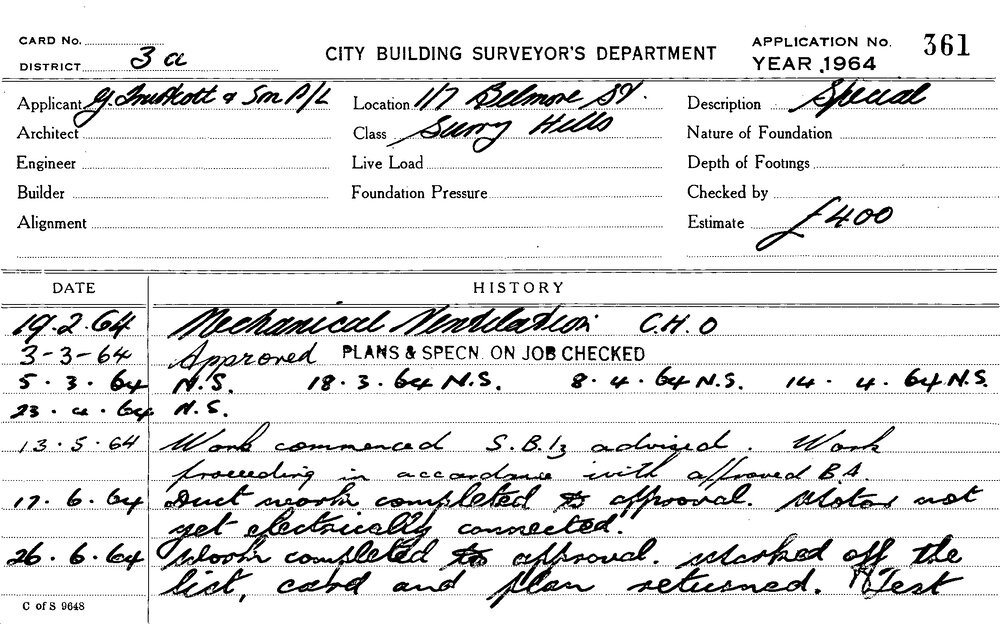 CARD No.
DISTRICT 3a
CITY BUILDING SURVEYOR'S DEPARTMENT
APPLICATION No. 361
YEAR, 1964
Applicant G. Truscott & Son P/L Location 1/7 Belmore St. Description Special
Architect Class Surry Hills Nature of Foundation
Engineer Live Load Depth of Footings
Builder Foundation Pressure Checked by
Alignment Estimate £400
DATE HISTORY
19.2.64 Mechanical Ventilation C.H.O
3-3-64 Approved PLANS & SPECN. ON JOB CHECKED
5.3.64 N.S. 18.3.64 N.S. 8.4.64 N.S. 14.4.64 N.S.
23.4.64 N.S.
13.5.64 Work commenced S.B.I. advised. Work
proceeding in accordance with approved B.A.
17.6.64 Duct work completed to approval. Motor not
yet electrically connected.
26.6.64 Work completed to approval. Marked off the
list, card and plan returned. Test
C of S 9648